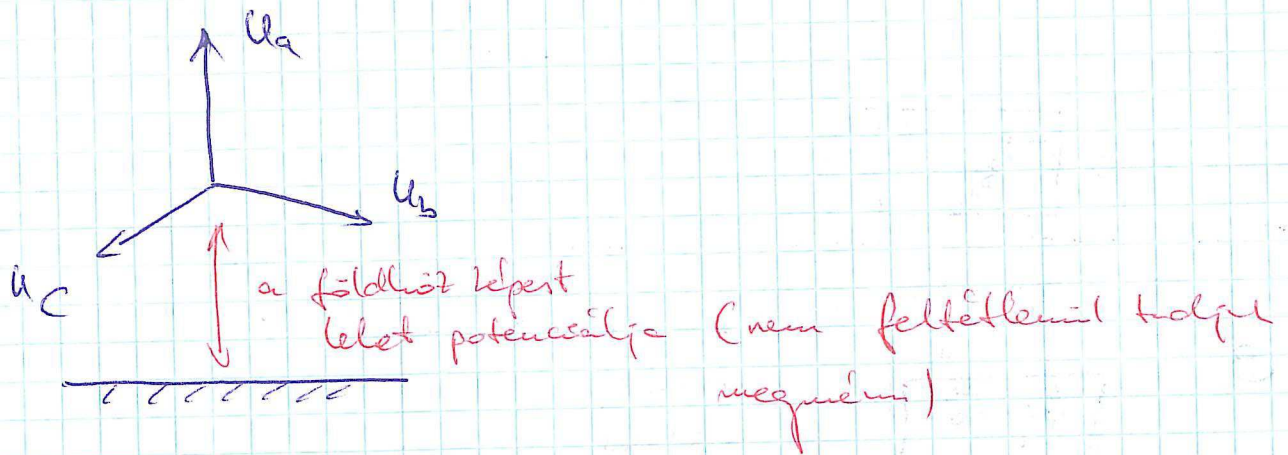 Ua
Ub
Uc
a földhöz képest
lehet potenciálja (nem feltétlenül tudjuk
megmérni)